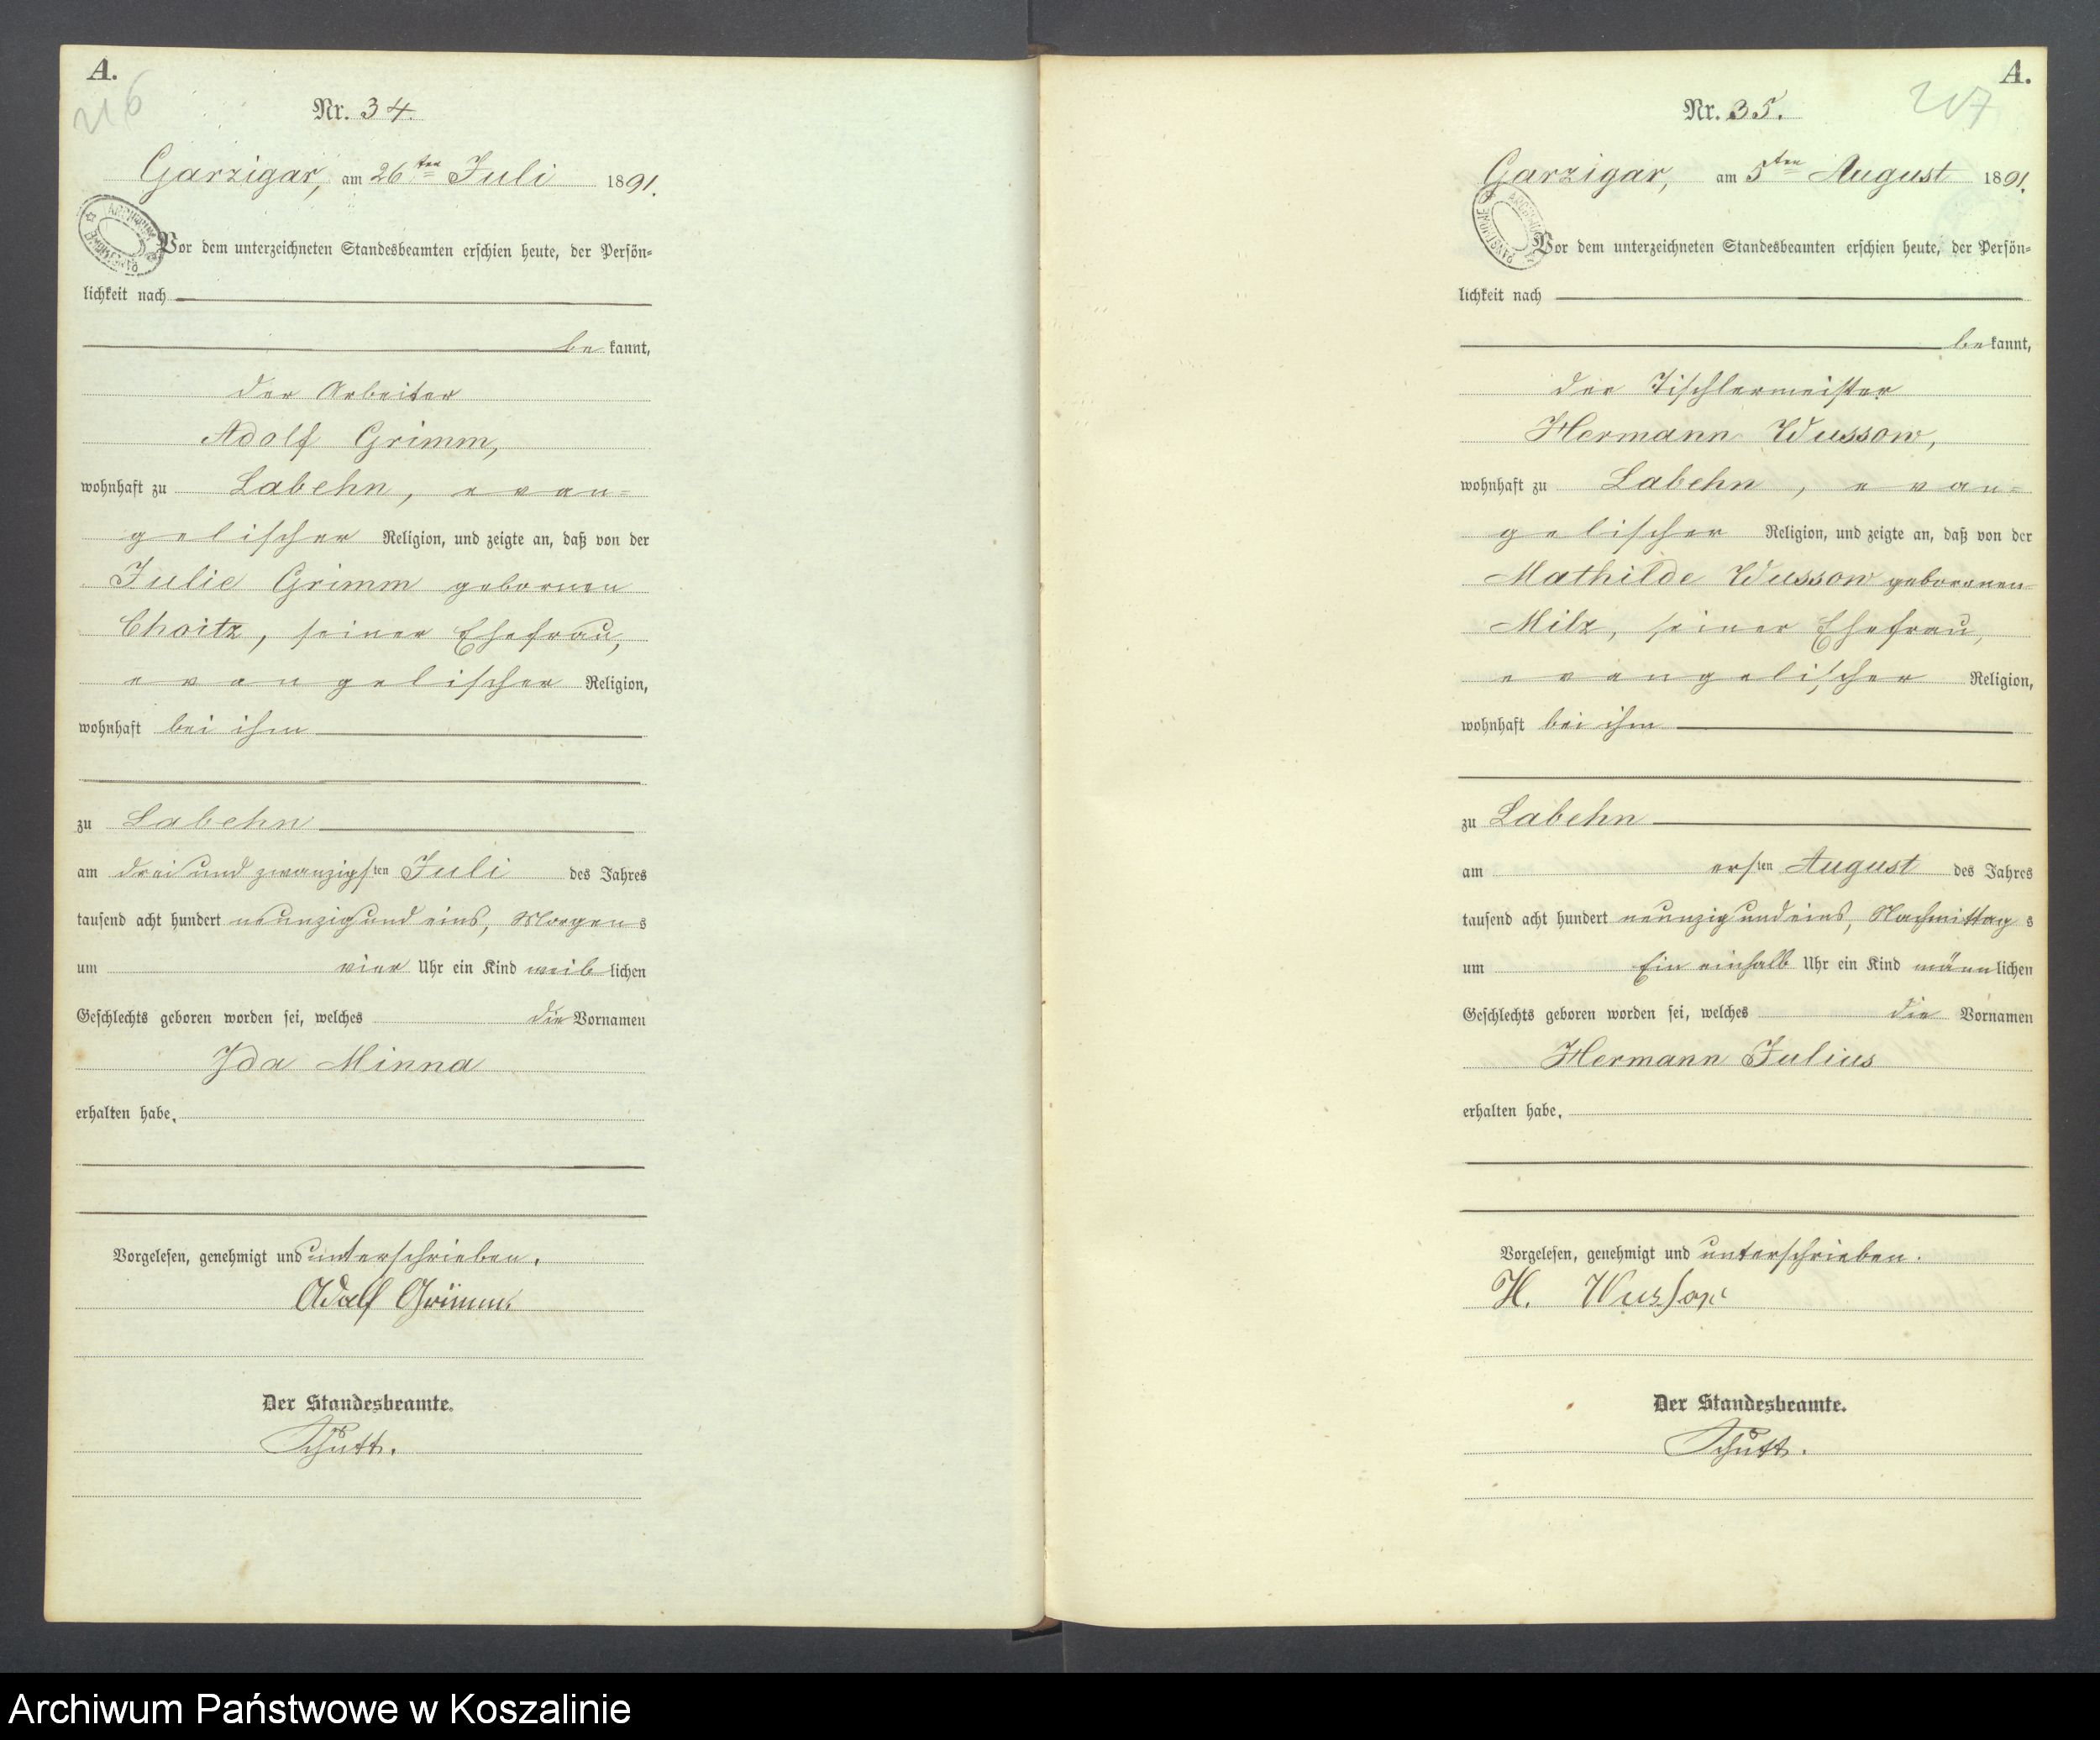 A.
216
Nr. 34.
Garzigar, am 26ten Juli 1891.
Vor dem unterzeichneten Standesbeamten erschien heute, der Persön-
lichkeit nach
be kannt,
der Arbeiter
Adolf Grimm,
wohnhaft zu Labehn, evan-
gelischer Religion, und zeigte an, daß von der
Julie Grimm gebornen
Choitz, seiner Ehefrau,
evangelischer Religion,
wohnhaft bei ihm
zu Labehn
am drei und zwanzigsten Juli des Jahres
tausend acht hundert neunzig und eins, Morgens
um vier Uhr ein Kind weiblichen
Geschlechts geboren worden sei, welches die Vornamen
Ida Minna
erhalten habe.
Vorgelesen, genehmigt und unterschrieben.
Adolf Grimm
Der Standesbeamte.
Schütt.
A.
217
Nr. 35.
Garzigar, am 5ten August 1891.
Vor dem unterzeichneten Standesbeamten erschien heute, der Persön-
lichkeit nach
be kannt,
der Tischlermeister
Hermann Wussow,
wohnhaft zu Labehn, evan-
gelischer Religion, und zeigte an, daß von der
Mathilde Wussow geborenen
Milz, seiner Ehefrau,
evangelischer Religion,
wohnhaft bei ihm
zu Labehn
am ersten August des Jahres
tausend acht hundert neunzig und eins, Nachmittags
um Ein einhalb Uhr ein Kind männlichen
Geschlechts geboren worden sei, welches die Vornamen
Hermann Julius
erhalten habe.
Vorgelesen, genehmigt und unterschrieben.
H. Wussow
Der Standesbeamte.
Schütt.
Archiwum Państwowe w Koszalinie